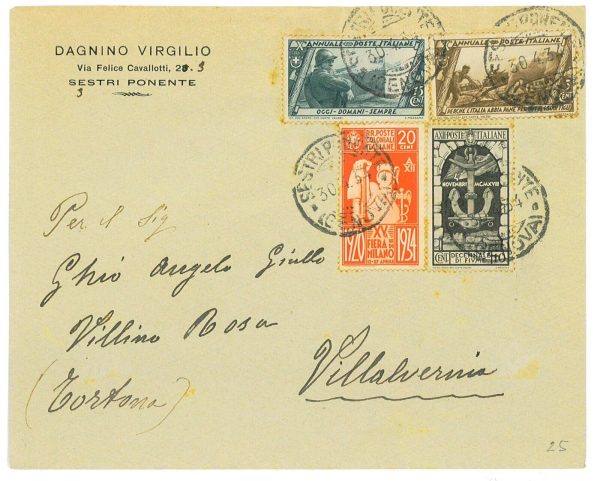 DAGNINO VIRGILIO
Via Felice Cavallotti, 28. 3
SESTRI PONENTE
3
ANNUALE POSTE ITALIANE
OGGI - DOMANI - SEMPRE
15 CENT
ANNUALE POSTE ITALIANE
PERCHE L'ITALIA ABBIA PANE PER TUTTI I SUOI FIGLI
CENT
R.R. POSTE COLONIALI ITALIANE
20 CENT
A XII
XV. FIERA DI MILANO
12-27 APRILE
1920
1934
A.XII POSTE ITALIANE
4 NOVEMBRE MCMXVIII
CENT 10
DECENNALE DI FIUME
SESTRI PONENTE
30.4.34
(GENOVA)
Per il Sig
Ghio Angelo Giulio
Villino Rosa
(Tortona)
Villalvernia
25